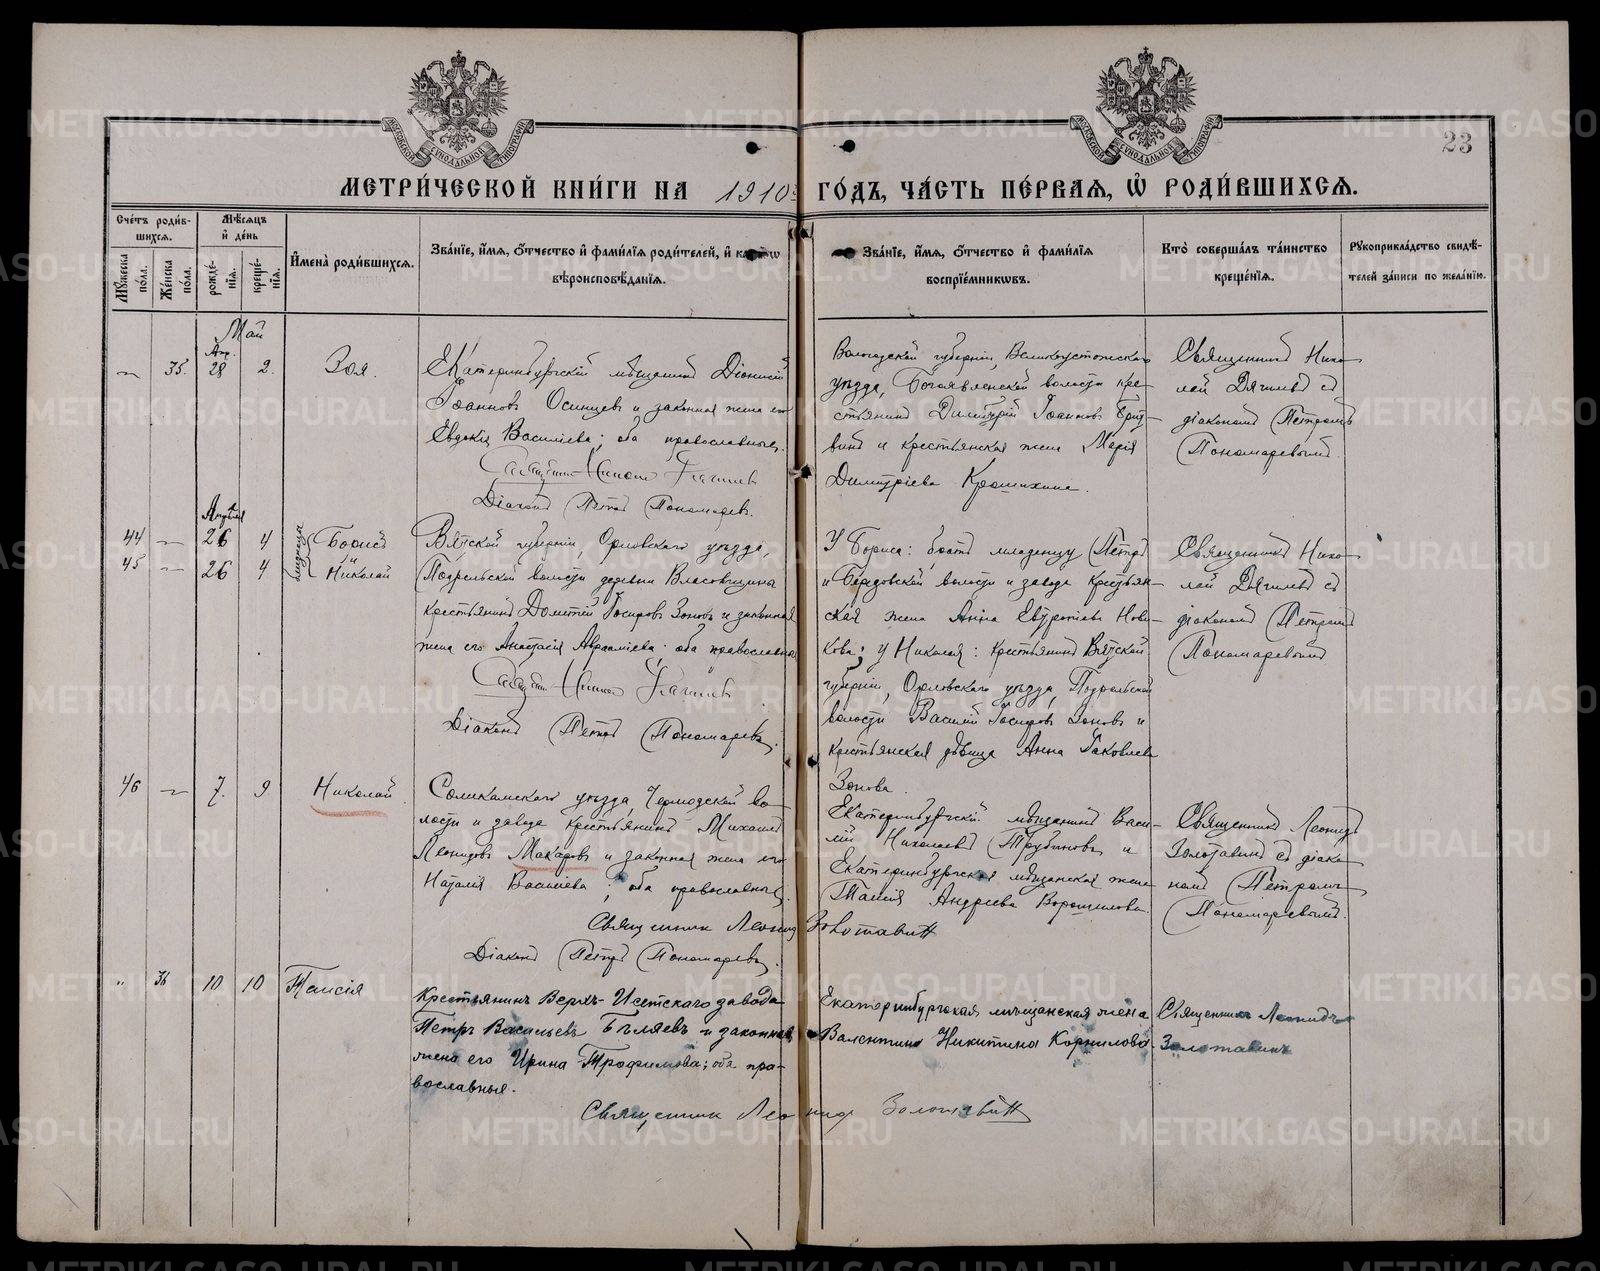 МОСКОВСКОЙ СѴНОДАЛЬНОЙ ТИПОГРАФІИ
МОСКОВСКОЙ СѴНОДАЛЬНОЙ ТИПОГРАФІИ
23
МЕТРИ́ЧЕСКОЙ КНИ́ГИ НА 1910 ГО́ДЪ, ЧА́СТЬ ПЕ́РВАѦ, Ѡ҆ РОДИ́ВШИХСѦ.
Сче́тъ роди́в-
шихсѧ.
Мꙋ́жеска по́ла.
Же́нска по́ла.
Мѣ́сѧцъ
и҆ де́нь
рожде́-
нїѧ.
креще́-
нїѧ.
И҆мена̀ роди́вшихсѧ.
Зва́нїе, и҆́мѧ, ѻ҆́тчество и҆ фами́лїѧ роди́телей, и҆
вѣроисповѣ́данїѧ.
Зва́нїе, и҆́мѧ, ѻ҆́тчество и҆ фами́лїѧ
воспрїе́мникѡвъ.
Кто̀ соверша́лъ та́инство
креще́нїѧ.
Рꙋкоприкла́дство свидѣ́-
телей за́писи по жела́нїю.
Май
Апр.
35. 28 2. Зоя
Екатеринбургскій мѣщанинъ Діонисій
Іоанновъ Осинцевъ и законная жена его
Евдокія Васильева; оба православные.
Священникъ Николай Дягилевъ
Діаконъ Петръ Пономаревъ.
Вологодской губерніи, Великоустюжскаго
уѣзда, Богоявленской волости кре-
стьянинъ Димитрій Іоанновъ
и крестьянская жена Марія
Димитріева Крошихина.
Священникъ Нико-
лай Дягилевъ съ
діакономъ Петромъ
Пономаревымъ.
Апрѣля
44 26 4 Борисъ
и
45 26 4 Николай
близнецы
Вятской губерніи, Орловскаго уѣзда,
Подрельской волости деревни Власовщина
крестьянинъ Дометій Іосифовъ Зоновъ и законная
жена его Анастасія Авраамiева; оба православные
Священникъ Николай Дягилевъ
Діаконъ Петръ Пономаревъ.
У Бориса: братъ младенцу Петръ
и волости и завода крестьян-
ская жена Анна Нови-
кова; у Николая: крестьянинъ Вятской
губерніи, Орловскаго уѣзда, Подрельской
волости Василій Іосифовъ Зоновъ и
крестьянская дѣвица Анна Іаковлева
Зонова.
Священникъ Нико-
лай Дягилевъ съ
діакономъ Петромъ
Пономаревымъ
46 7. 9 Николай
Соликамскаго уѣзда, Чермозской во-
лости и завода крестьянинъ Михаилъ
Леонидовъ Макаровъ и законная жена его
Наталія Васильева; оба православные.
Священник Леонид Золотавин
Діаконъ Петръ Пономаревъ.
Екатеринбургскій мѣщанинъ Васи-
лій Николаевъ Трубиновъ и
Екатеринбургская мѣщанская жена
Таисія Андреева Ворошилова.
Священникъ Леонидъ
Золотавинъ съ діако-
номъ Петромъ
Пономаревымъ.
" 36 10 10 Таисія
Крестьянинъ Верхъ-Исетскаго завода
Петръ Васильевъ Бѣляевъ и законная
жена его Ирина Трофимова; оба пра-
вославные.
Священник Леонид Золотавин
Екатеринбургская мѣщанская жена
Валентина Никитина Корнилова.
Священникъ Леонидъ
Золотавинъ
METRIKI.GASO-URAL.RU